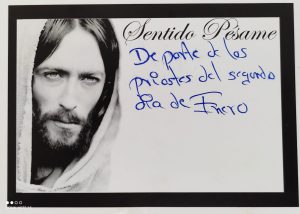 Sentido Pésame
De parte de los
priostes del segundo
día de Enero